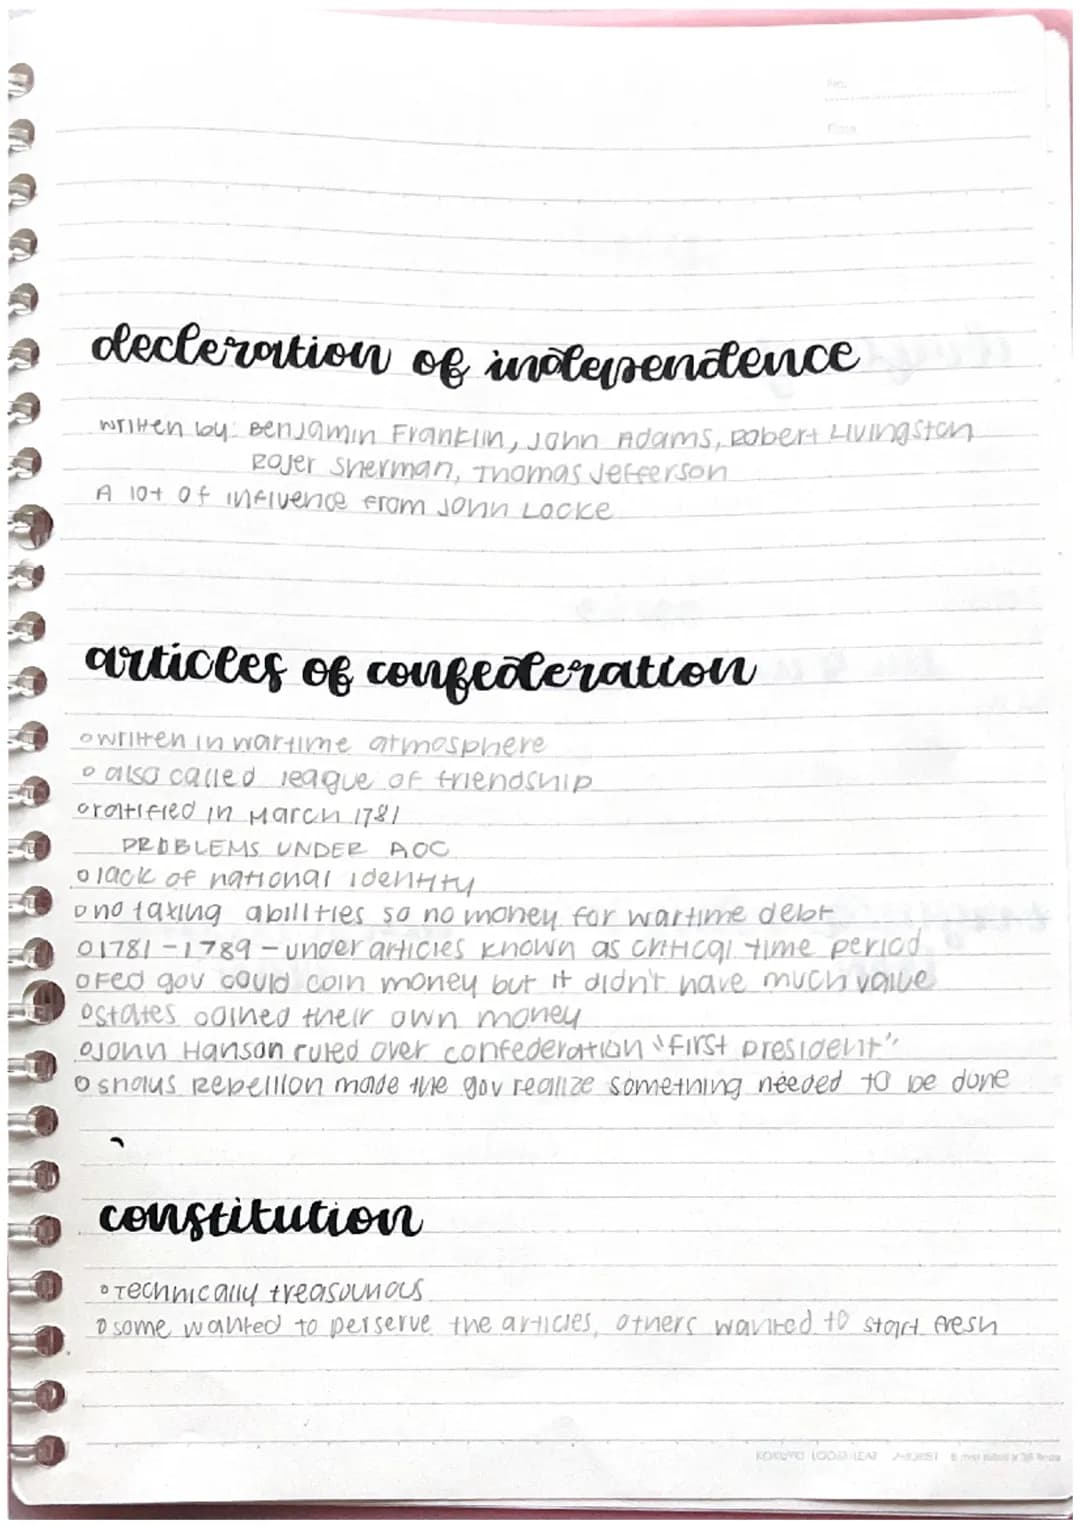 No.
Date
decleration of independence
written by: Benjamin Franklin, John Adams, Robert Livingston
Rojer Sherman, Thomas Jefferson
A lot of influence from John Locke
articles of confederation
written in wartime atmosphere
also called league of friendship
ratified in March 1781
PROBLEMS UNDER AOC
lack of national identity
no taxing abilities so no money for wartime debt
1781-1789 - under articles known as critical time period
Fed gov could coin money but it didn't have much value
states coined their own money
John Hanson ruled over confederation "first president"
shaus Rebellion made the gov realize something needed to be done
constitution
Technically treasounous
some wanted to perserve the articles, others wanted to start fresh
KOKUYO LOOSE-LEAF